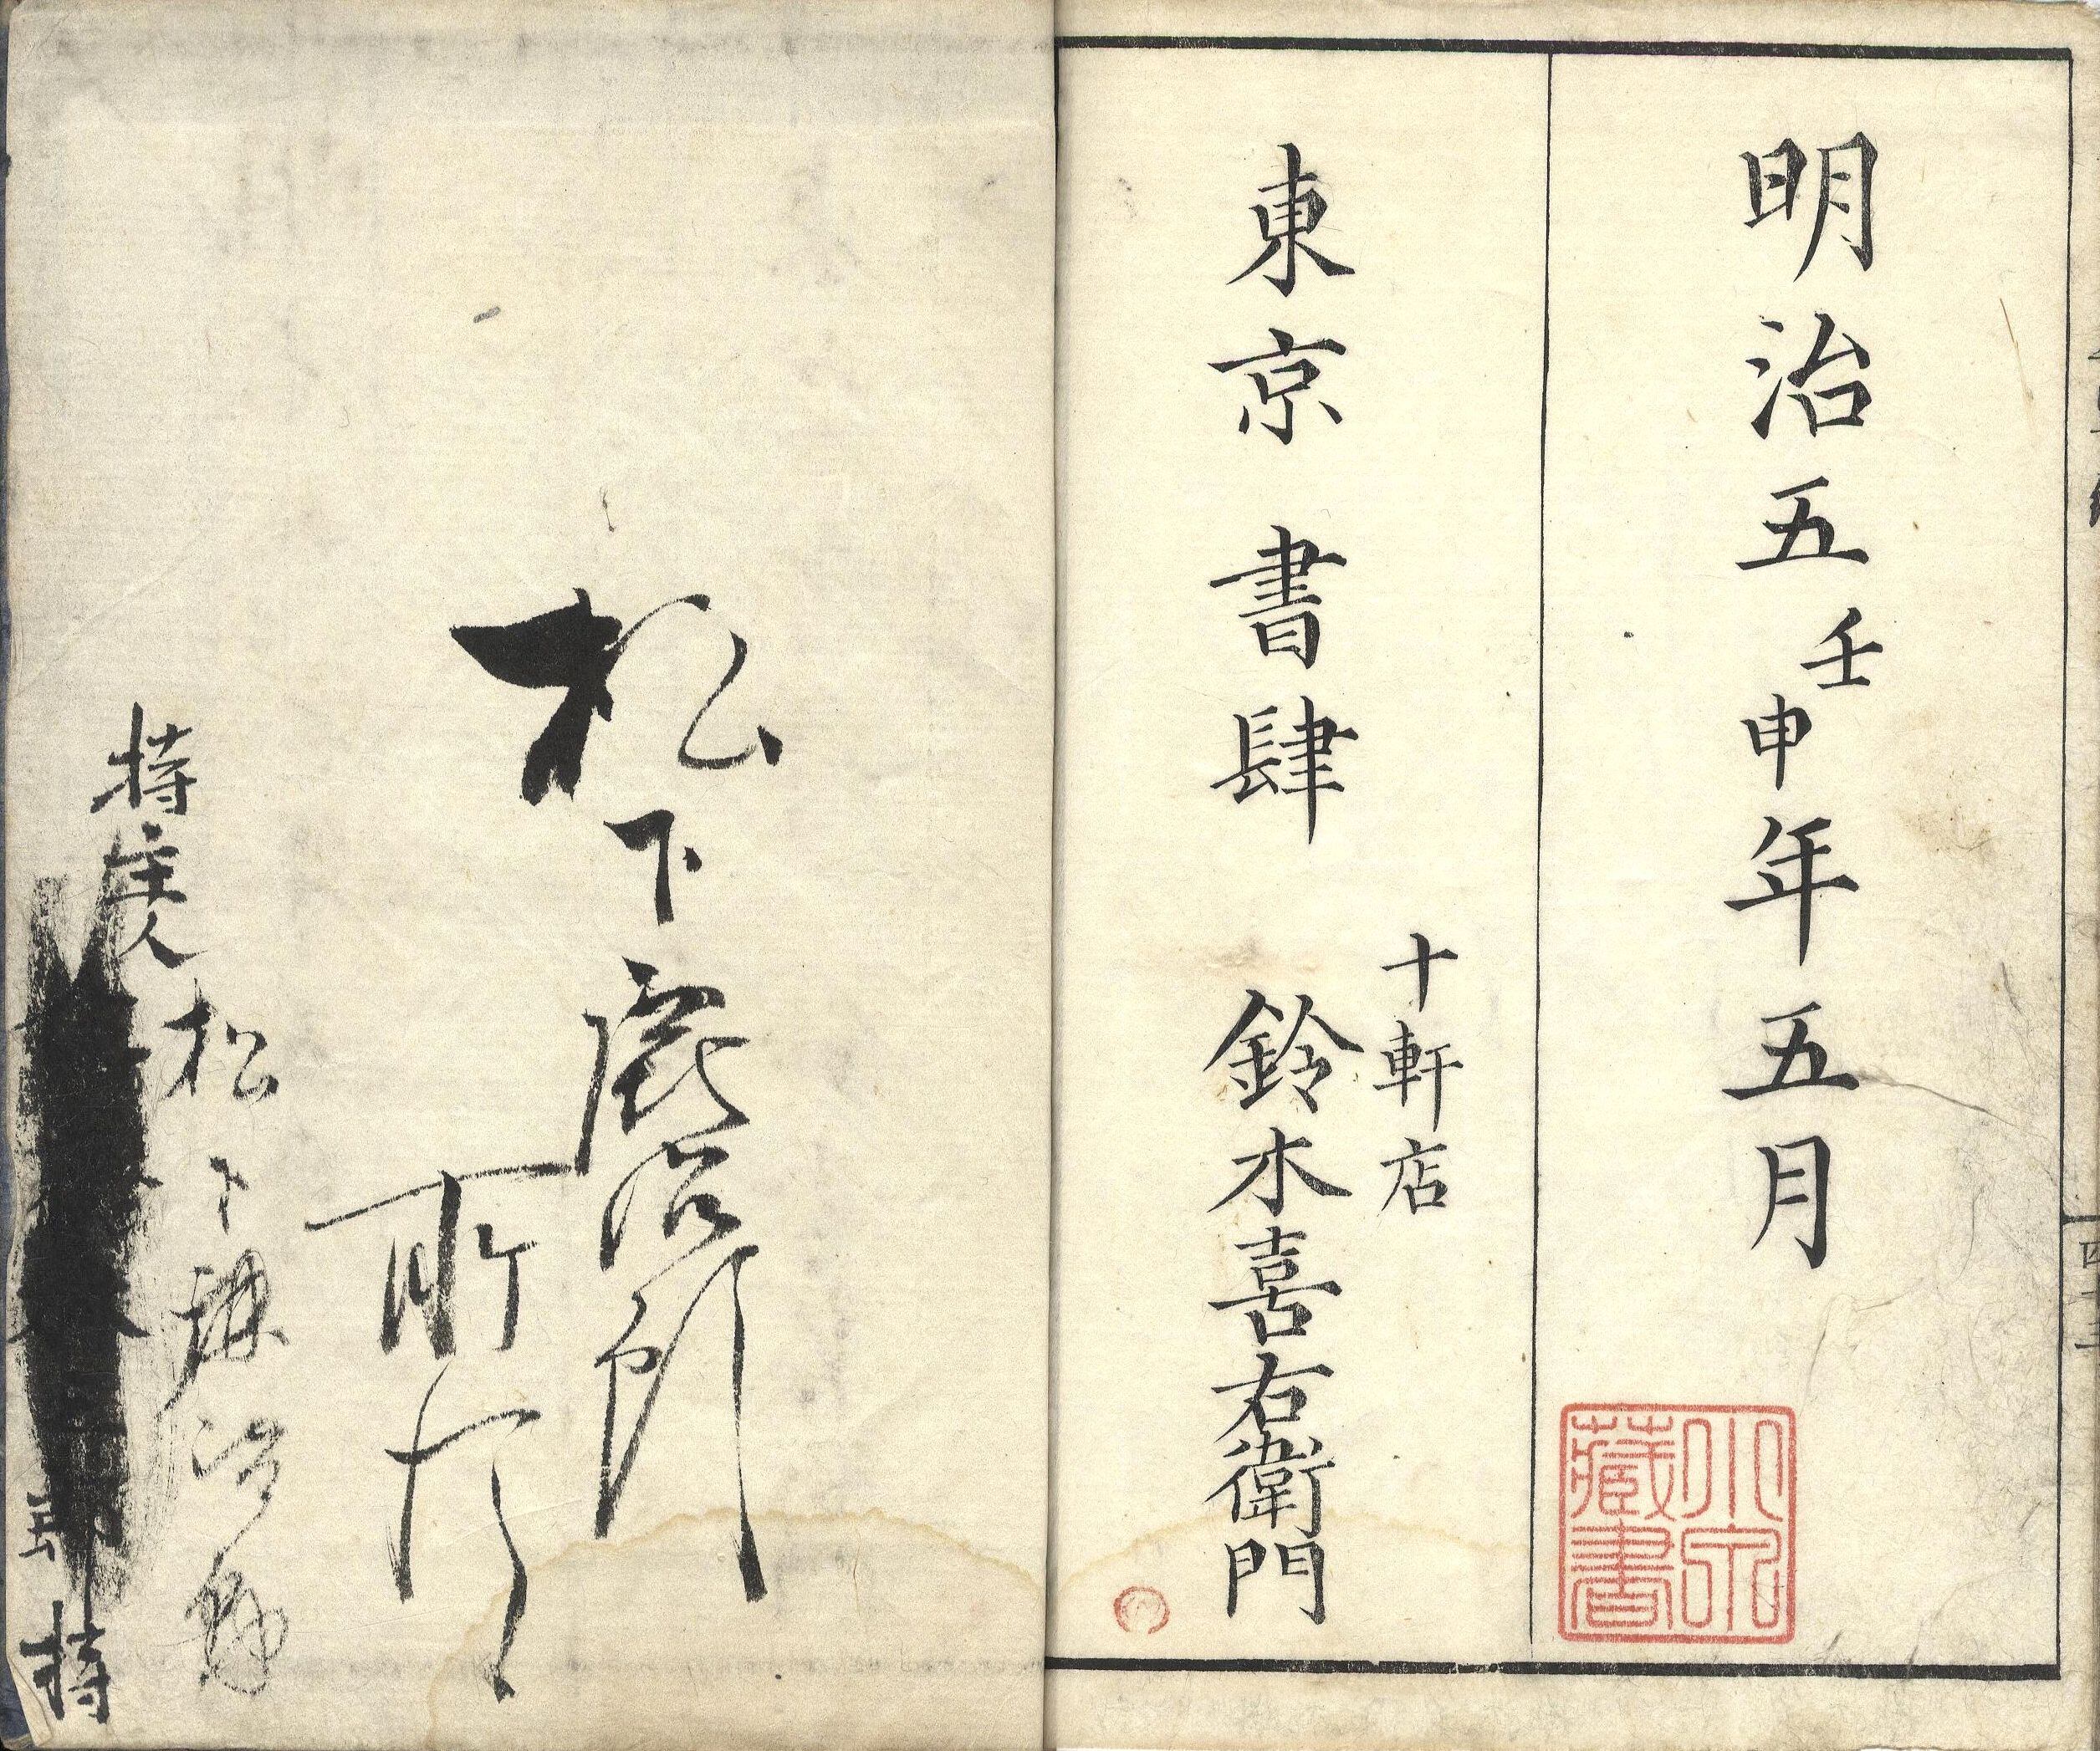 明治五壬申年五月
東京書肆
十軒店
鈴木喜右衛門
小宗藏書
松下
治郎
所持
持主人
松下
治
持